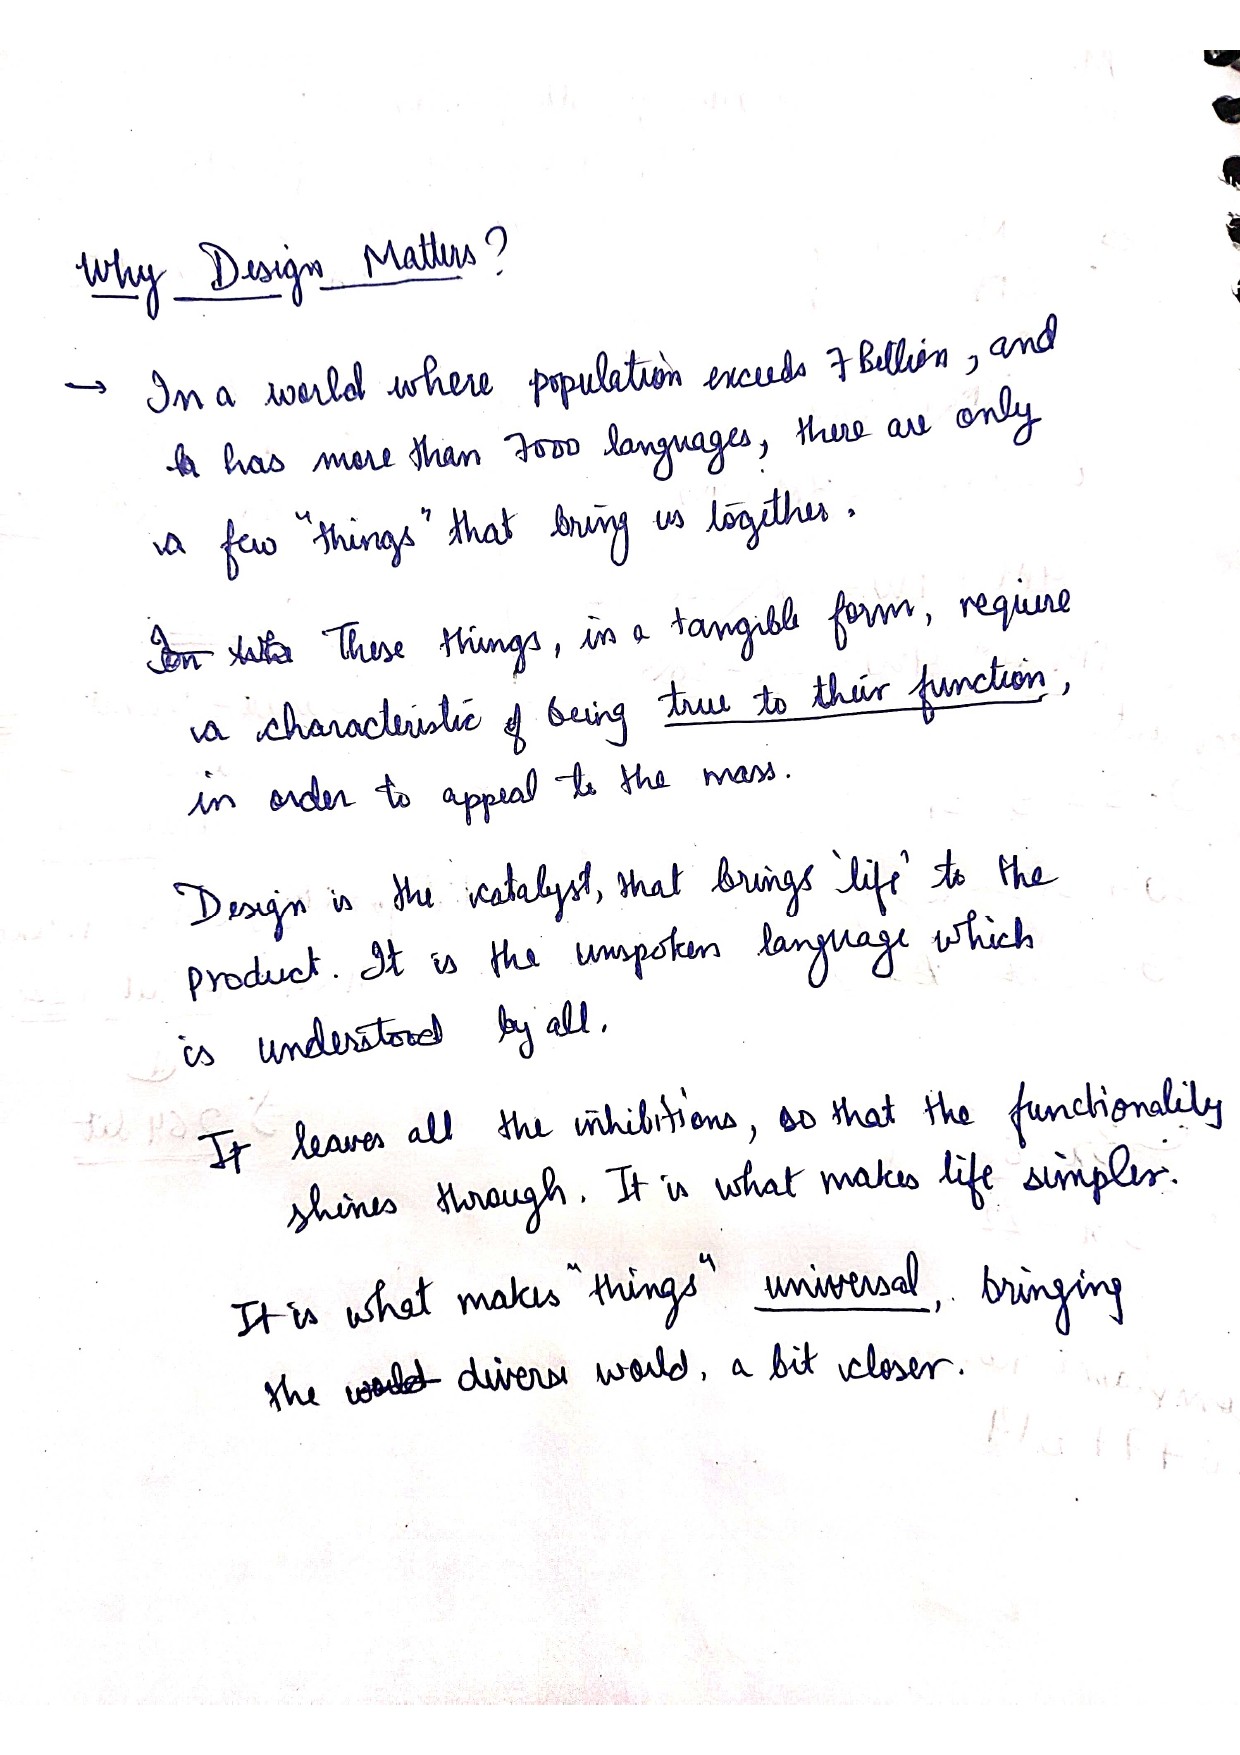 Why Design Matters?
→ In a world where population exceeds 7 Billion, and
has more than 7000 languages, there are only
a few "things" that bring us together.
These things, in a tangible form, require
a characteristic of being true to their function,
in order to appeal to the mass.
Design is the catalyst, that brings 'life' to the
product. It is the unspoken language which
is understood by all.
It leaves all the inhibitions, so that the functionality
shines through. It is what makes life simpler.
It is what makes "things" universal, bringing
the diverse world, a bit closer.